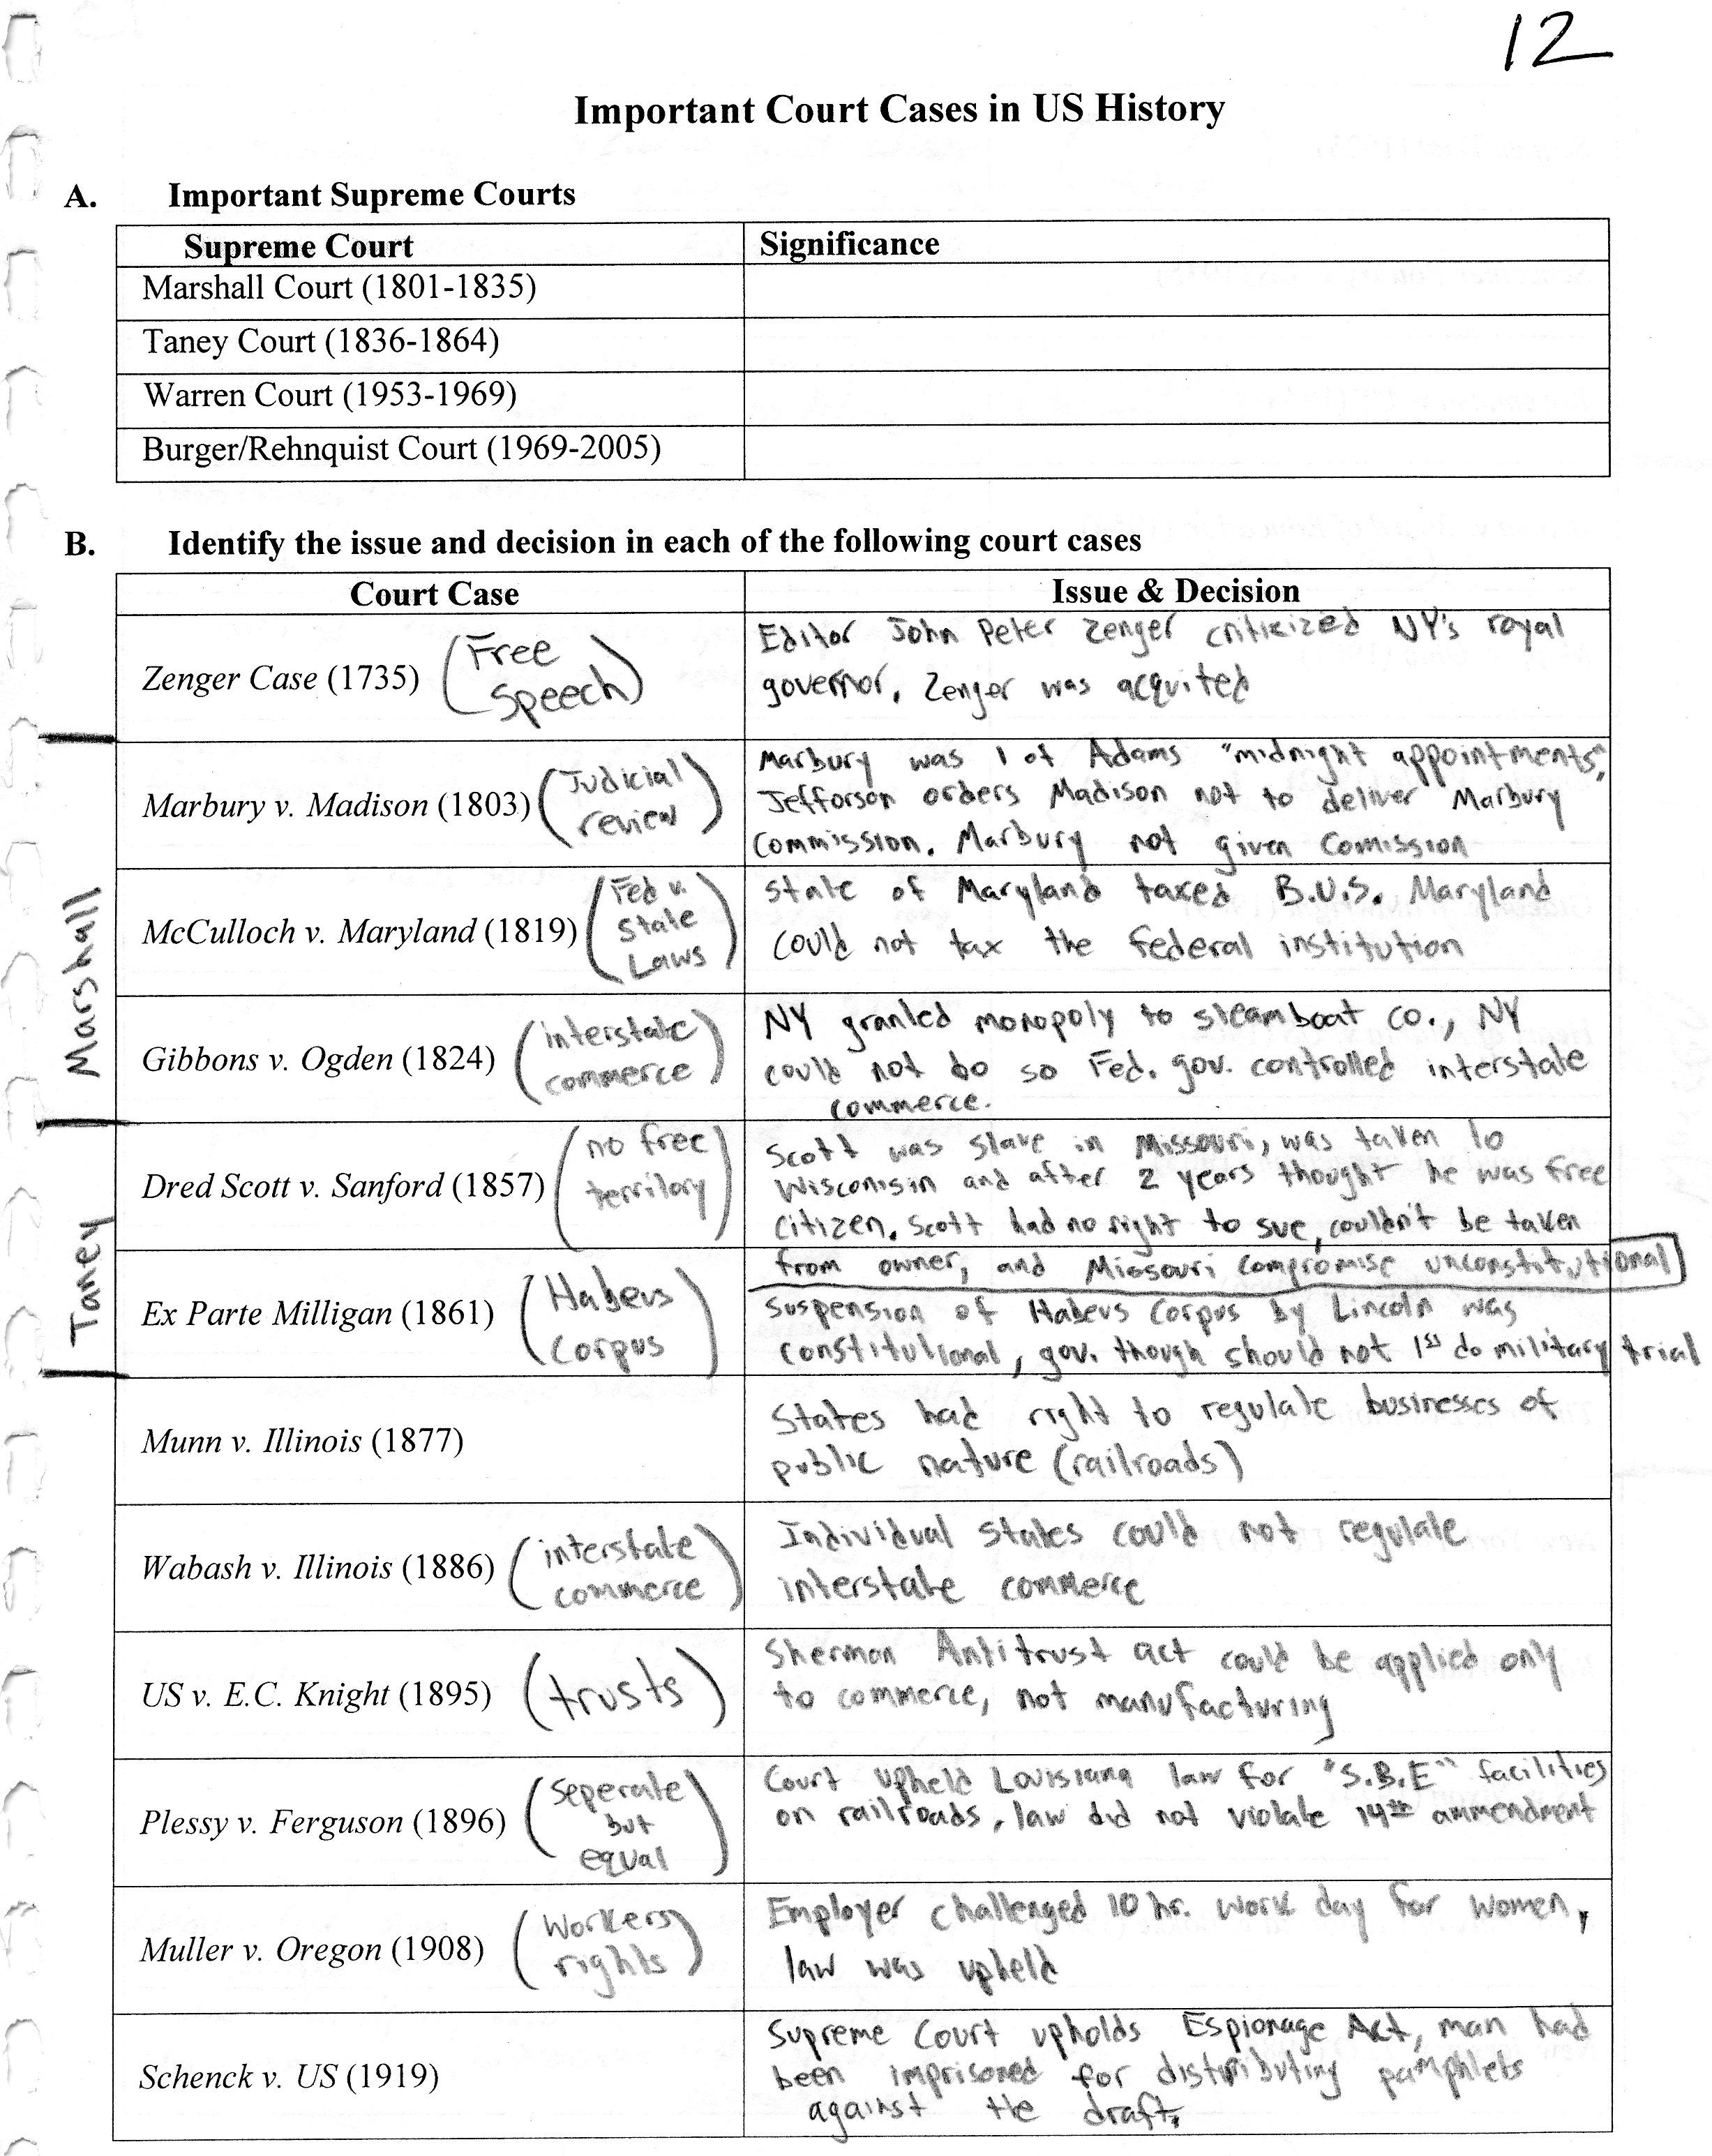 12
Important Court Cases in US History
A. Important Supreme Courts
Supreme Court Significance
Marshall Court (1801-1835)
Taney Court (1836-1864)
Warren Court (1953-1969)
Burger/Rehnquist Court (1969-2005)
B. Identify the issue and decision in each of the following court cases
Court Case Issue & Decision
Zenger Case (1735) (Free
Speech)
Editor John Peter Zenger critisized NY's royal
governor, Zenger was acquited
Marshall
Marbury v. Madison (1803) (Judicial
review)
Marbury was 1 of Adams "midnight appointments",
Jefforson orders Madison not to deliver Marbury
Commission. Marbury not given Comission
McCulloch v. Maryland (1819) (Fed v.
State
Laws)
State of Maryland taxed B.U.S. Maryland
could not tax the federal institution
Gibbons v. Ogden (1824) (interstate
commerce)
NY granted monopoly to steamboat co., NY
could not do so Fed. gov. controlled interstate
commerce.
Taney
Dred Scott v. Sanford (1857) (no free
territory)
Scott was slave in Missouri, was taken to
Wisconisin and after 2 years thought he was free
citizen. Scott had no right to sue, couldn't be taken
from owner, and Missouri compromise unconstitutional
Ex Parte Milligan (1861) (Habeus
Corpus)
Suspension of Habeus Corpus by Lincoln was
constitutional, gov. though should not 1st do military trial
Munn v. Illinois (1877)
States had right to regulate businesses of
public nature (railroads)
Wabash v. Illinois (1886) (interstate
commerce)
Individual states could not regulate
interstate commerce
US v. E.C. Knight (1895) (trusts)
Sherman Antitrust act could be applied only
to commerce, not manufacturing
Plessy v. Ferguson (1896) (Seperate
but
equal)
Court upheld Louisiana law for "S.B.E" facilities
on railroads, law did not violate 14th ammendment
Muller v. Oregon (1908) (Workers
rights)
Employer challenged 10 hr. work day for women,
law was upheld
Schenck v. US (1919)
Supreme Court upholds Espionage Act, man had
been imprisoned for distributing pamphlets
against the draft.